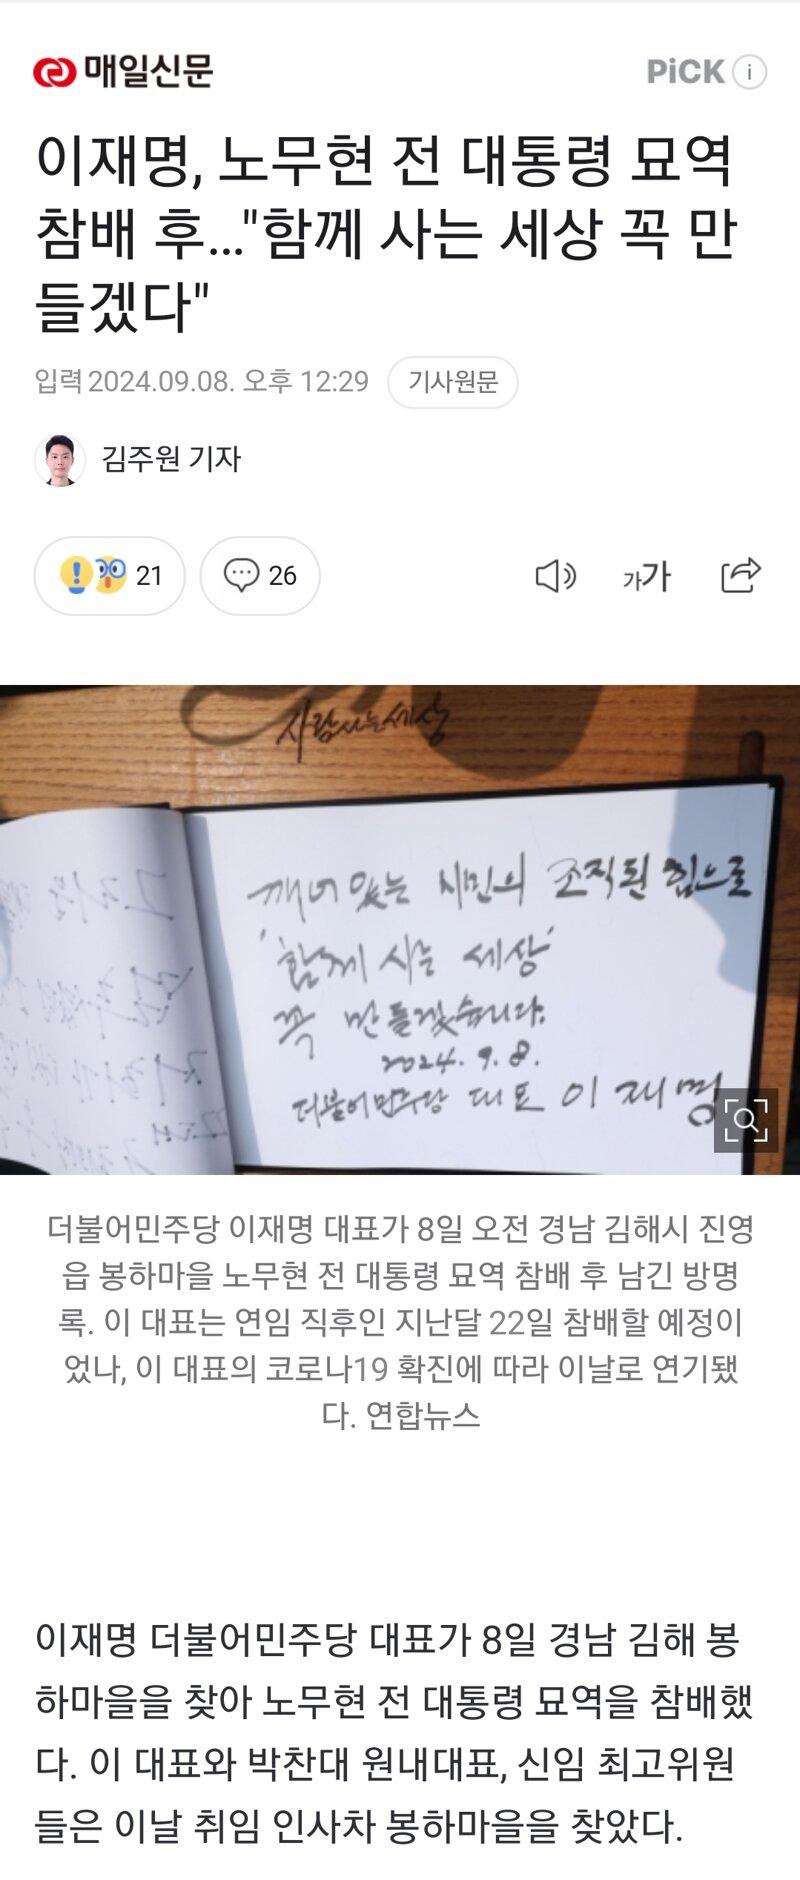 매일신문
PiCK i
이재명, 노무현 전 대통령 묘역
참배 후…"함께 사는 세상 꼭 만
들겠다"
입력 2024.09.08. 오후 12:29 기사원문
김주원 기자
21 26 가가
사람사는세상
깨어있는 시민의 조직된 힘으로
'함께 사는 세상'
꼭 만들겠습니다.
2024. 9. 8.
더불어민주당 대표 이재명
더불어민주당 이재명 대표가 8일 오전 경남 김해시 진영
읍 봉하마을 노무현 전 대통령 묘역 참배 후 남긴 방명
록. 이 대표는 연임 직후인 지난달 22일 참배할 예정이
었나, 이 대표의 코로나19 확진에 따라 이날로 연기됐
다. 연합뉴스
이재명 더불어민주당 대표가 8일 경남 김해 봉
하마을을 찾아 노무현 전 대통령 묘역을 참배했
다. 이 대표와 박찬대 원내대표, 신임 최고위원
들은 이날 취임 인사차 봉하마을을 찾았다.